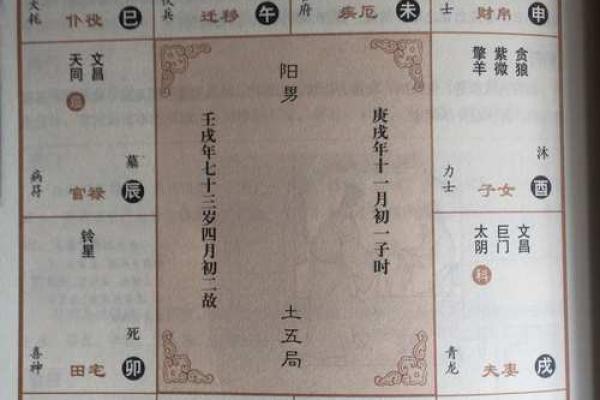 耗
仆役
巳
兵
迁移
午
府
疾厄
未
士
财帛
申
文昌
天同
墓
病符
官禄
辰
铃星
死
喜神
田宅
卯
阳男
庚戌年十一月初一子时
壬戌年七十三岁四月初二故
土五局
贪狼
紫微
擎羊
沐
力士
子女
酉
文昌
巨门
太阴
科
青龙
夫妻
戌